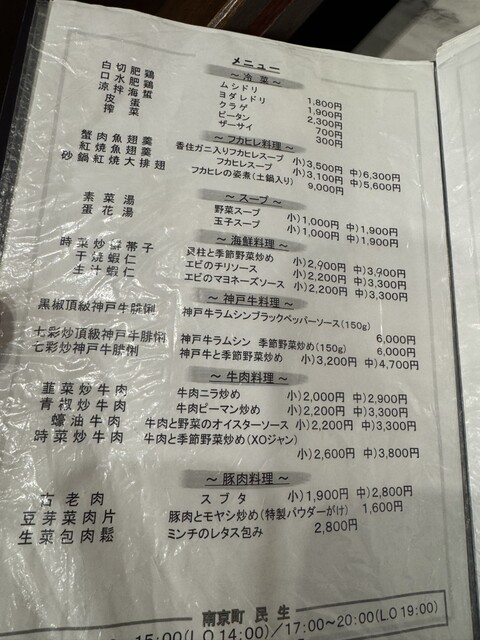 メニュー
～冷菜～
白切肥鶏 ムシドリ 1,800円
口水肥鶏 ヨダレドリ 1,900円
涼拌海蜇 クラゲ 2,300円
皮蛋 ピータン 700円
搾菜 ザーサイ 300円
～フカヒレ料理～
蟹肉魚翅羹 香住ガニ入りフカヒレスープ 小)3,500円 中)6,300円
紅焼魚翅羹 フカヒレスープ 小)3,100円 中)5,600円
砂鍋紅焼大排翅 フカヒレの姿煮(土鍋入り) 9,000円
～スープ～
素菜湯 野菜スープ 小)1,000円 中)1,900円
蛋花湯 玉子スープ 小)1,000円 中)1,900円
～海鮮料理～
時菜炒鮮帯子 貝柱と季節野菜炒め 小)2,900円 中)3,900円
干焼蝦仁 エビのチリソース 小)2,200円 中)3,300円
生汁蝦仁 エビのマヨネーズソース 小)2,200円 中)3,300円
～神戸牛料理～
黒椒頂級神戸牛腓悧 神戸牛ラムシンブラックペッパーソース(150g) 6,000円
七彩炒頂級神戸牛腓悧 神戸牛ラムシン 季節野菜炒め(150g) 6,000円
七彩炒神戸牛腓悧 神戸牛と季節野菜炒め 小)3,200円 中)4,700円
～牛肉料理～
韮菜炒牛肉 牛肉ニラ炒め 小)2,000円 中)2,900円
青椒炒牛肉 牛肉ピーマン炒め 小)2,200円 中)3,300円
蠔油牛肉 牛肉と野菜のオイスターソース 小)2,200円 中)3,300円
時菜炒牛肉 牛肉と季節野菜炒め(XOジャン)
小)2,600円 中)3,800円
～豚肉料理～
古老肉 スブタ 小)1,900円 中)2,800円
豆芽菜肉片 豚肉とモヤシ炒め(特製パウダーがけ) 1,600円
生菜包肉鬆 ミンチのレタス包み 2,800円
南京町 民生
15:00(L.O 14:00)／17:00～20:00(L.O 19:00)